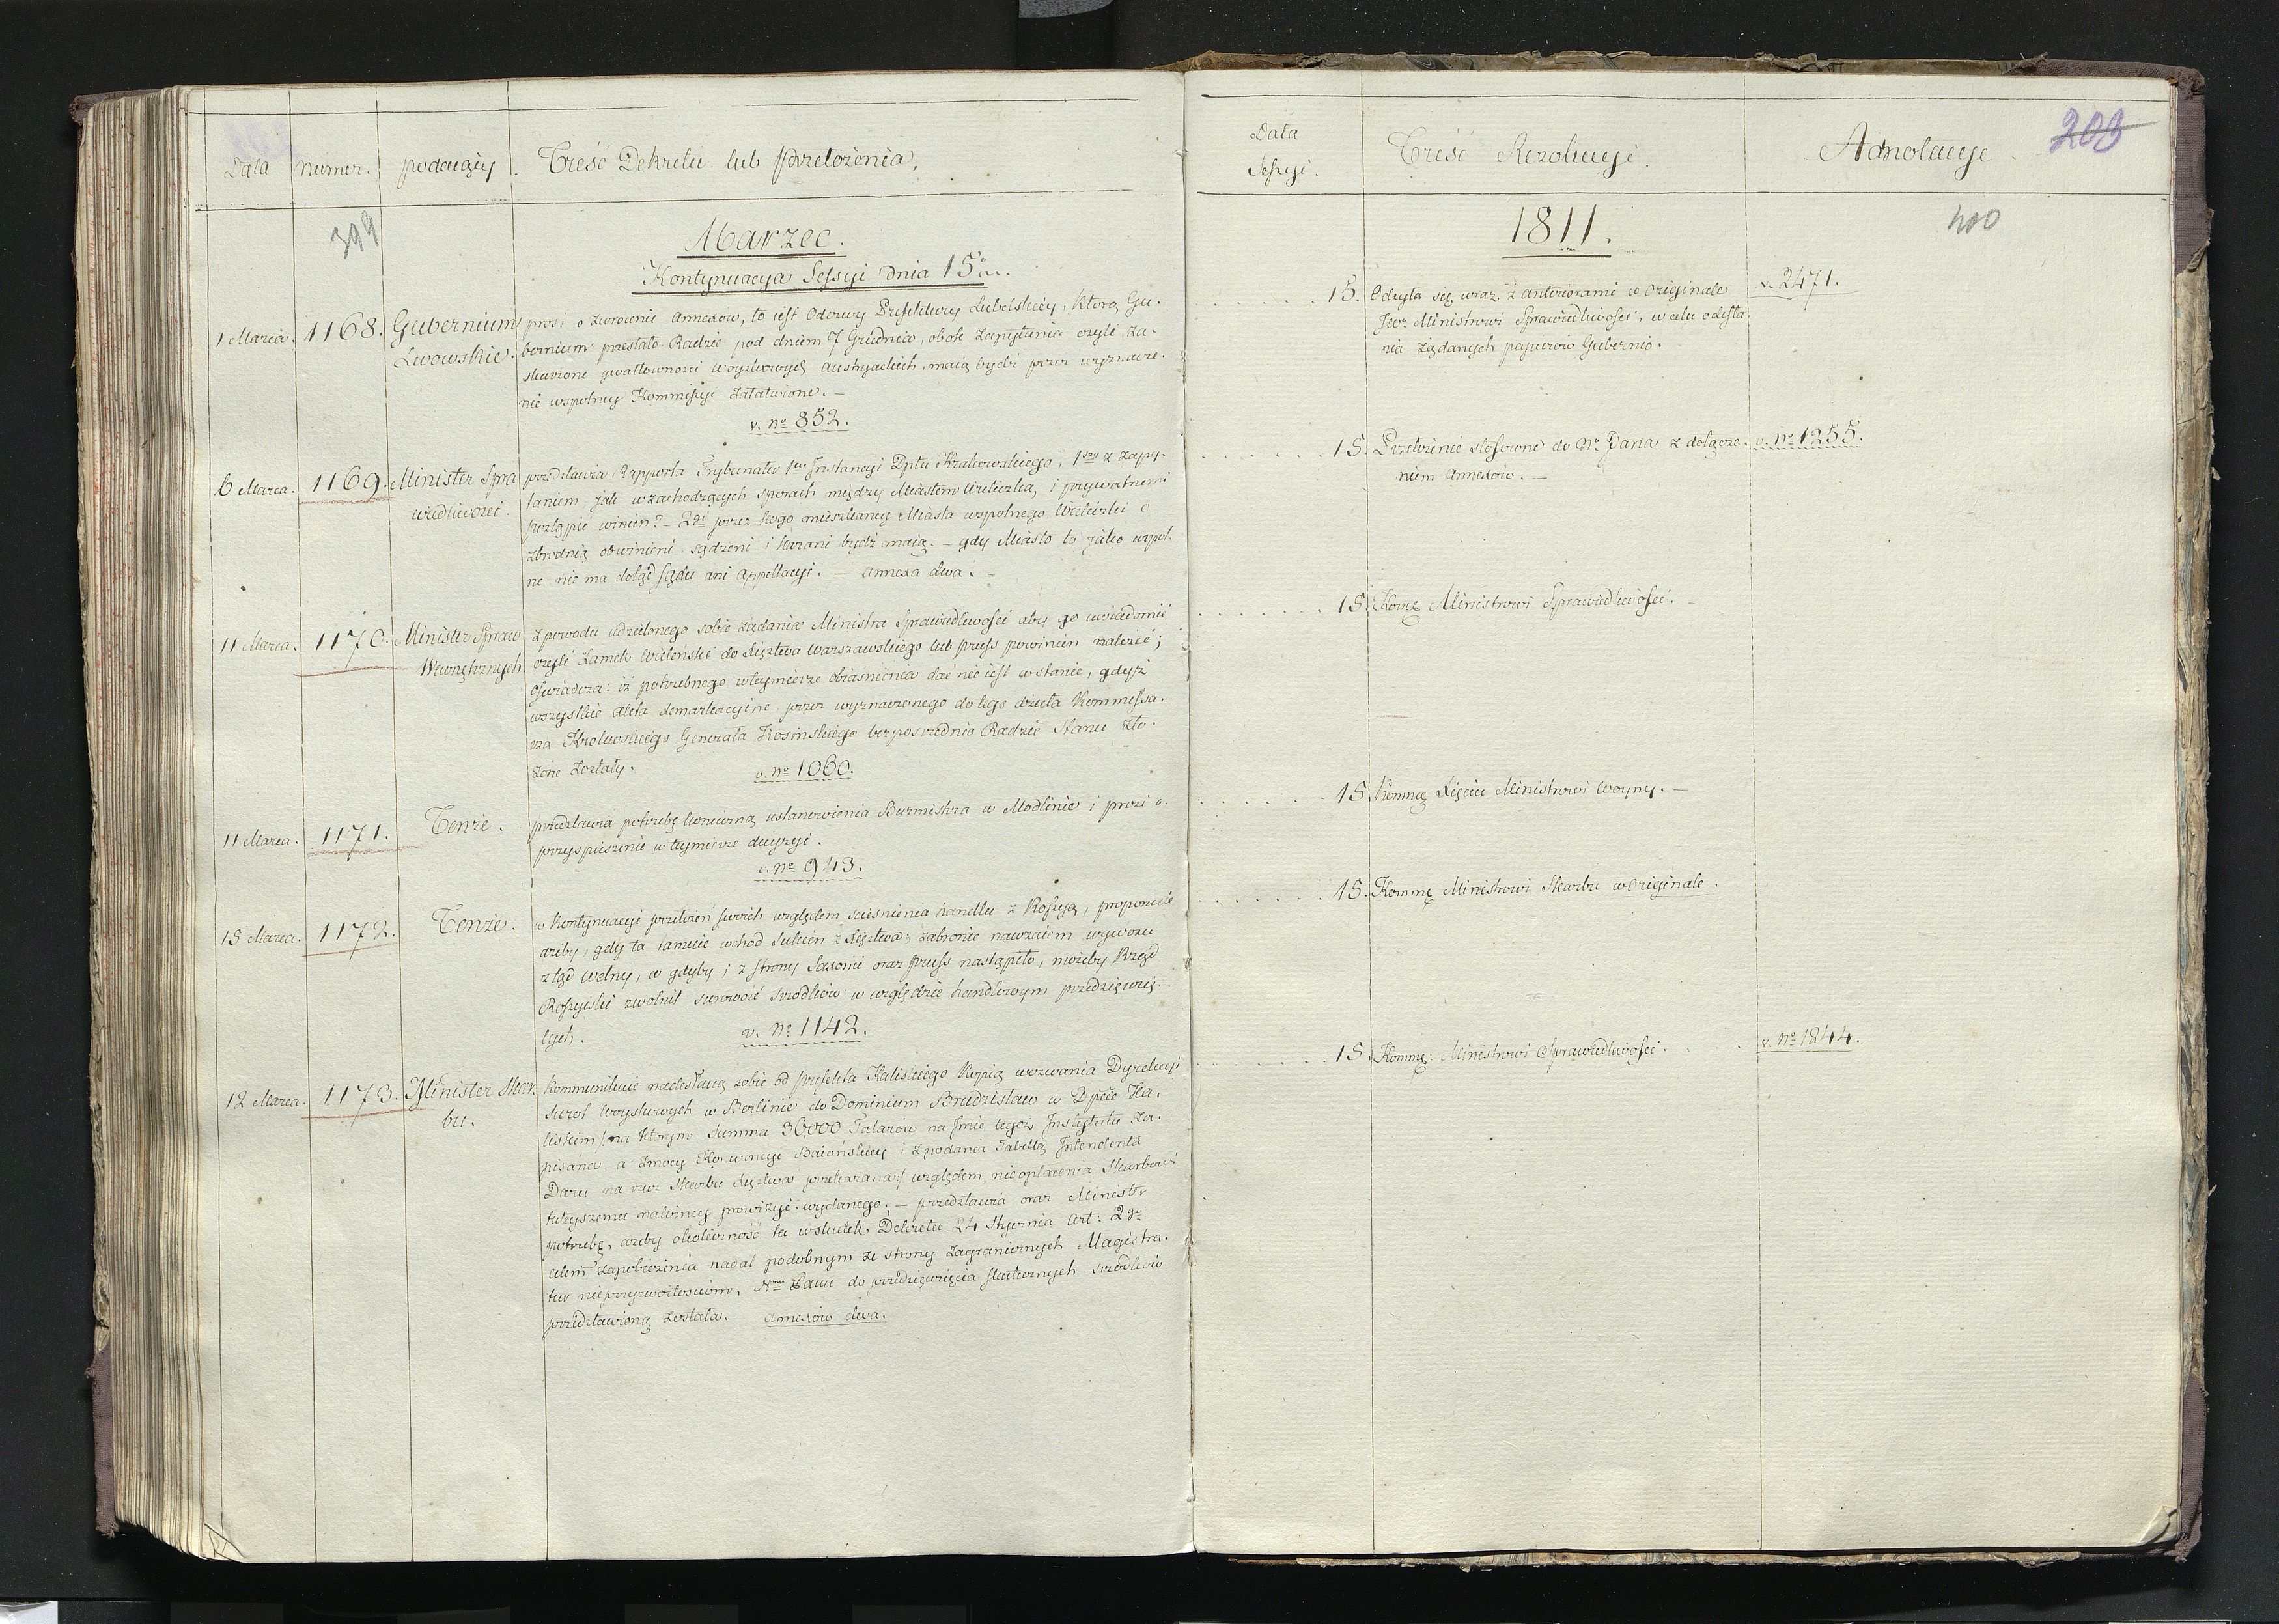 Data Numer. podaiący. Treść Dekretu lub Przełożenia.
399
Marzec.
Kontynuacya Sessyi dnia 15º m.
1 Marca. 1168. Gubernium Lwowskie.
prosi o zwrocenie Annexow, to iest Odezwy Prefektury Lubelskiey, ktorą Gu-
bernium przesłało Radzie pod dniem 7 Grudnia, obok zapytania czyli za-
skarzone gwałtowności woyskowych Austryackich, maią bydź przez wyznacze-
nie wspolney Kommissyi załatwione. —
v. nº 852.
6 Marca. 1169. Minister Spra
wiedliwości.
przedstawia Rapporta Trybunału 1ey Instancyi Dptu Krakowskiego, 1szy z zapy-
taniem jak w zachodzących sporach między Miastem Wieliczką, i prywatnemi
postąpić winien? — 2gi przez kogo mieszkancy Miasta wspolnego Wieliczki o
zbrodnią obwinieni sądzeni i karani bydź maią. — gdy Miasto to jako wspol-
ne nie ma dotąd sądu ani Appellacyi. — Annexa dwa. —
11 Marca. 1170. Minister Spraw
Wewnętrznych
z powodu udzielonego sobie żądania Ministra Sprawiedliwości aby go uwiadomić
czyli Zamek Wieleński do Xięztwa Warszawskiego lub Pruss powinien należeć;
oświadcza: iż potrzebnego w teymierze obiaśnienia dać nie iest w stanie, gdyż
wszystkie Akta demarkacyine przez wyznaczonego do tego dzieła Kommissa-
rza Krolewskiego Generała Kosinskiego bezposrzednio Radzie Stanu zło-
żone zostały.
v. nº 1060.
11 Marca. 1171. Tenże.
przedstawia potrzebę konieczną ustanowienia Burmistrza w Modlinie i prosi o
przyspieszenie w teymierze decyzyi.
v. nº 943.
15 Marca. 1172. Tenże.
w kontynuacyi przełożeń swoich względem scieśnienia handlu z Rossyą, proponuie
ażeby, gdy ta tamuie wchod sukien z Xięztwa, zabronić nawzaiem wywozu
ztąd wełny, a gdyby i z strony Saxonii oraz Pruss nastąpiło, możeby Rząd
Rossyiski zwolnił surowość srzodków w względzie handlowym przedsięwzię-
tych.
v. nº 1142.
12 Marca. 1173. Minister Skar-
bu.
kommunikuie nadesłaną sobie od Prefekta Kaliskiego Kopią wezwania Dyrekcyi
Sierot Woyskowych w Berlinie do Dominium Brudzislaw w Dpcie Ka-
liskim /: na ktorym Summa 36,000 Talarow na Imie tegoż Instytutu za-
pisana, a z mocy Konwencyi Baiońskiey i z podania Tabellą Intendenta
Daru na rzecz Skarbu Xięztwa przekazana :/ względem nieopłacenia Skarbowi
tuteyszemu należney prowizyi wydanego; — przedstawia oraz Ministr
potrzebę, ażeby okoliczność ta wskutek Dekretu 24 Stycznia Art: 2go
celem zapobieżenia nadal podobnym ze strony zagranicznych Magistra-
tur nieprzyzwoitosciom, Nmu Panu do przedsięwzięcia skutecznych srzodkow
przedstawioną została. Annexow dwa.
Data
Sessyi.
Treść Rezolucyi.
Adnotacye
203
1811.
400
15. Odsyła się wraz z anteriorami w Originale
JWº Ministrowi Sprawiedliwości, w celu odesła-
nia żądanych papierow Gubernio.
v. 2471.
15. Przełożenie stosowne do Nº Pana z dołącze-
niem Annexow. —
v. nº 1255.
15. Komę Ministrowi Sprawiedliwości. —
15. Kommę Xięciu Ministrowi Woyny. —
15. Kommę Ministrowi Skarbu w Originale.
15. Kommę: Ministrowi Sprawiedliwości.
v. nº 1244.